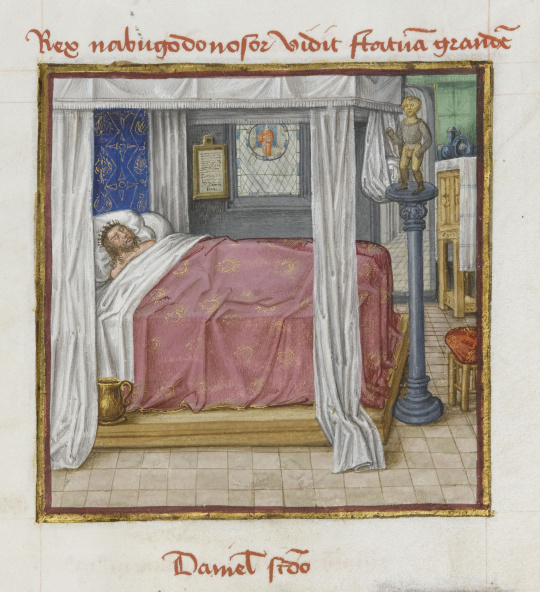 Rex nabugodonosor vidit statuā grandē
Daniel̄ scdō